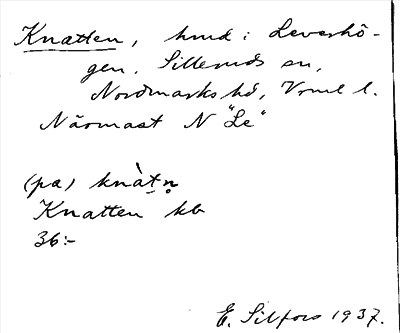 Knatten, hmd i Leverhö-
gen, Silleruds sn,
Nordmarks hd, Vrml l.
Närmast N "Le"
(pa) knàt̯n̥
Knatten kb
36:-
E. Silfors 1937.